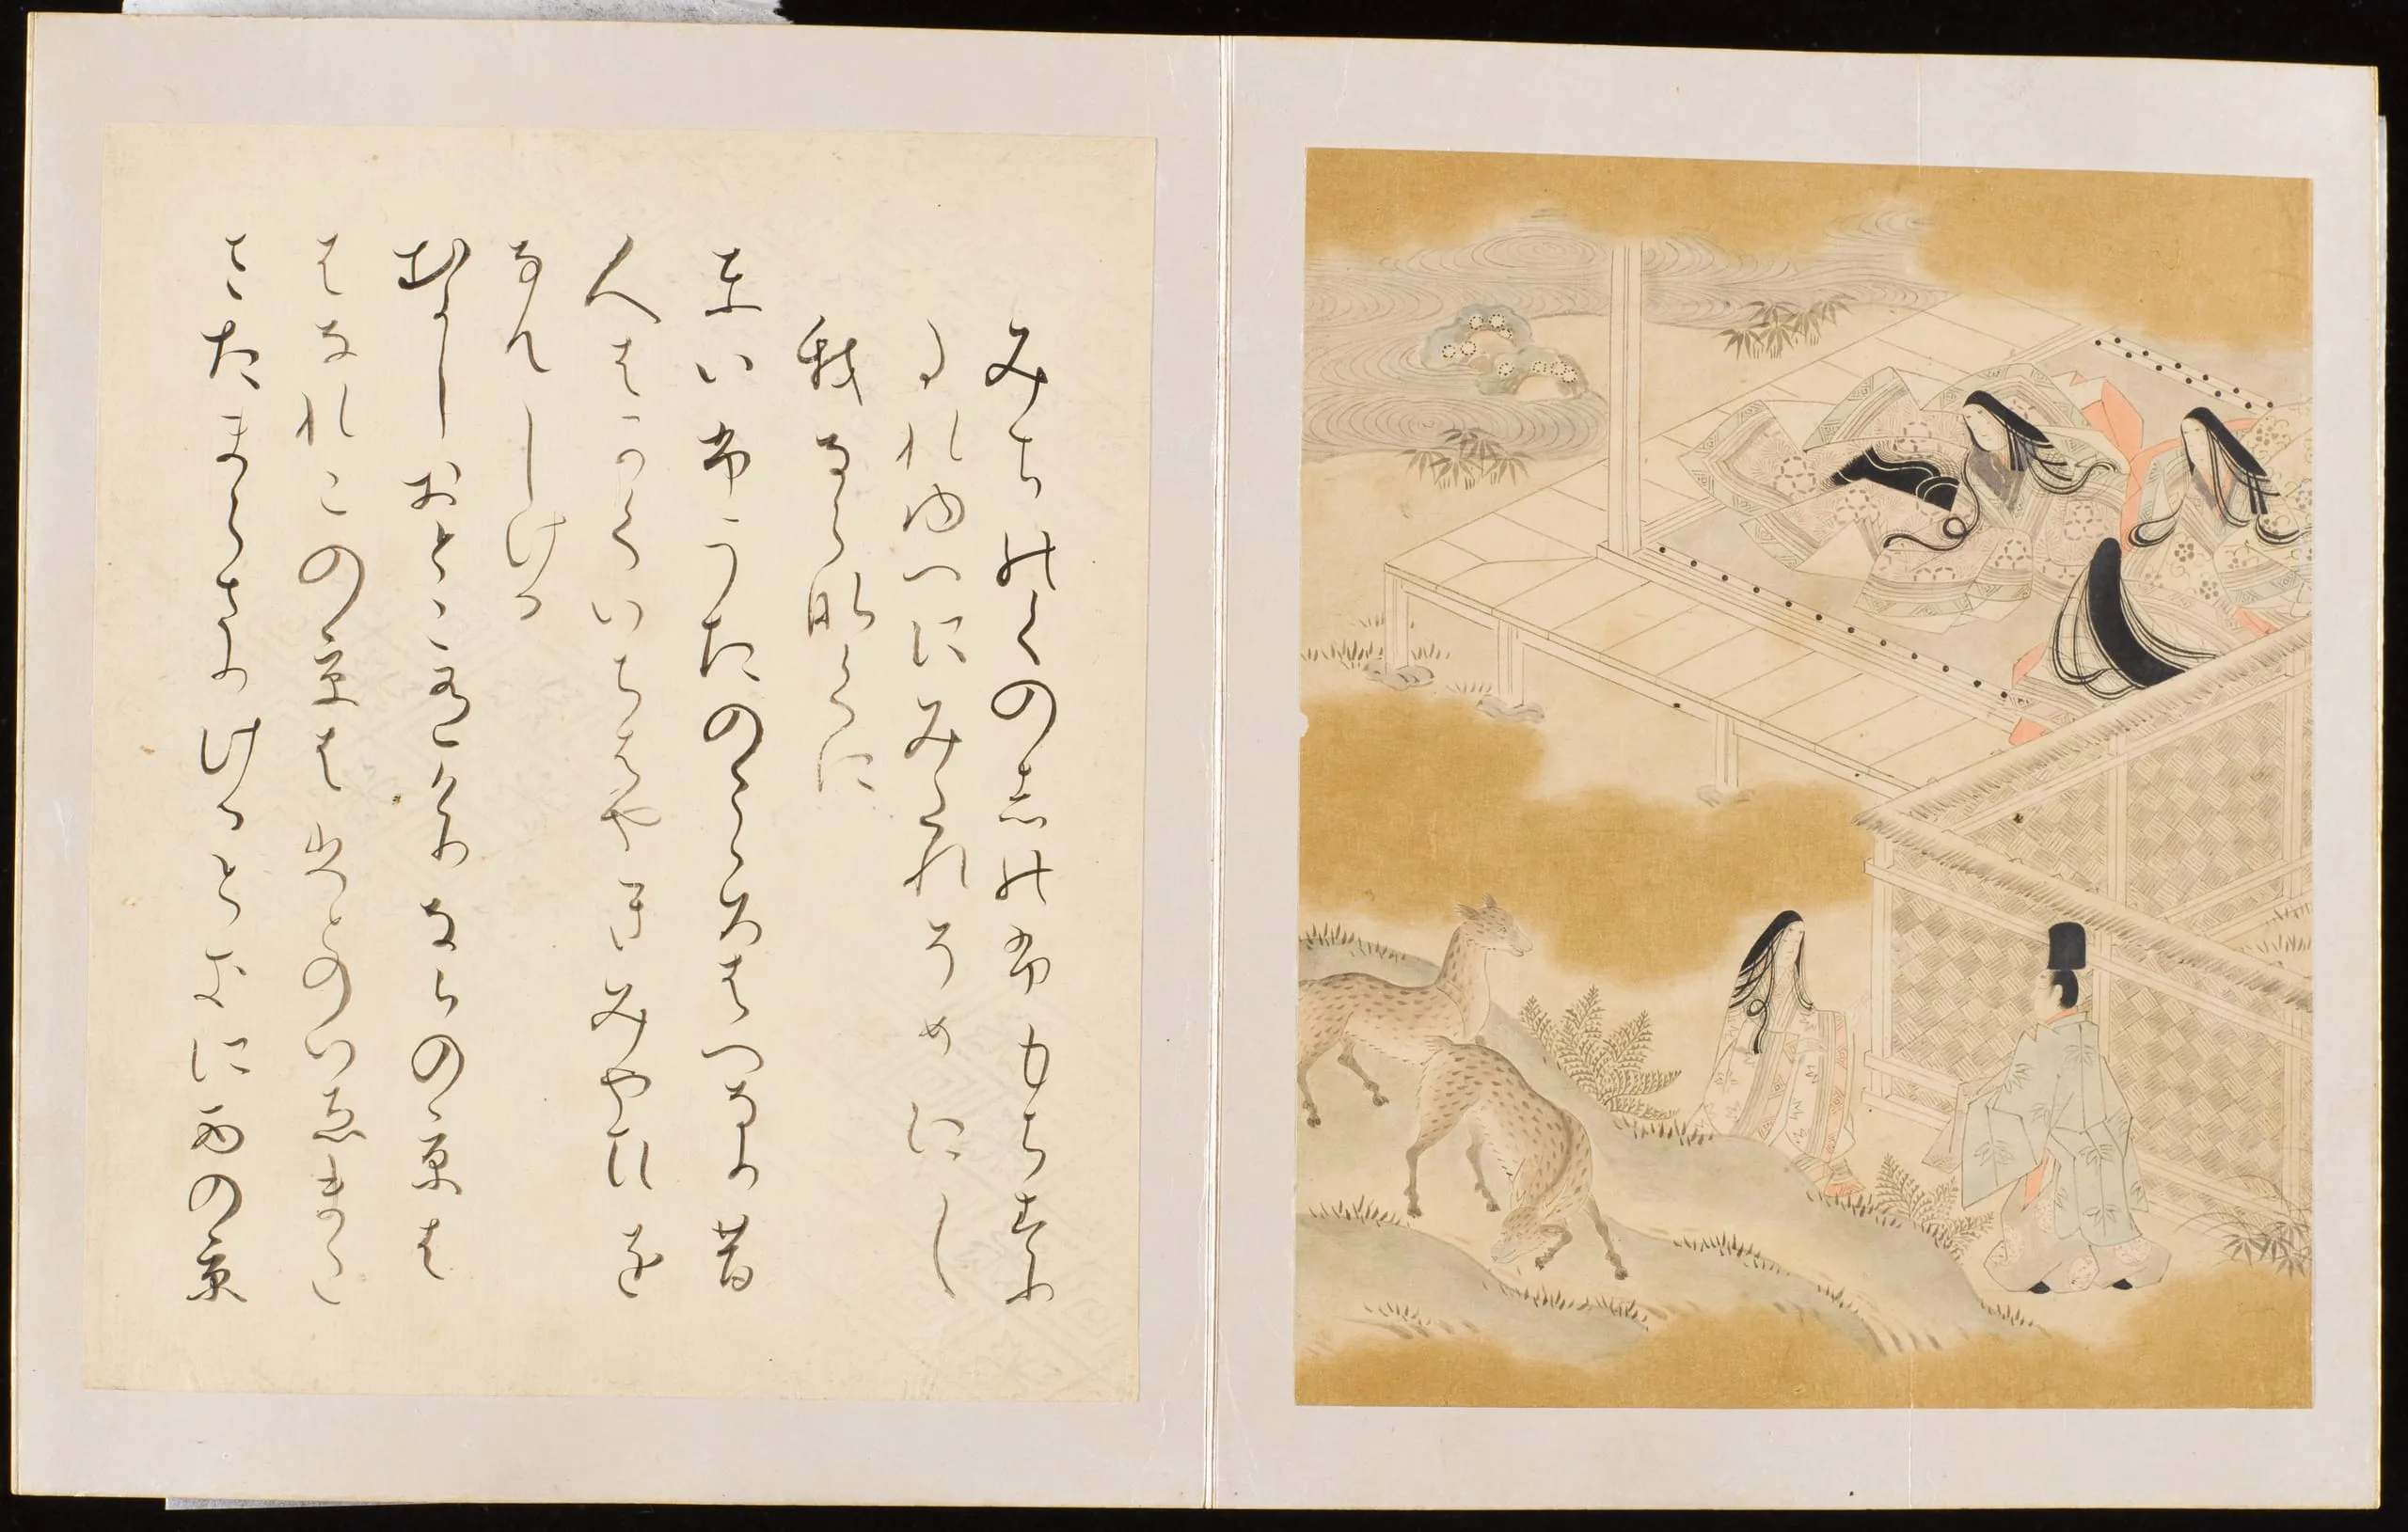 みちのくのしのふもちすり
たれゆへにみたれそめにし
我ならなくに
といふうたのこゝろはへなり昔
人はかくいちはやきみやひを
なんしける
むかしおとこ有けりならの京は
はなれこの京は人のいゑまた
さたまらさりけるときににしの京